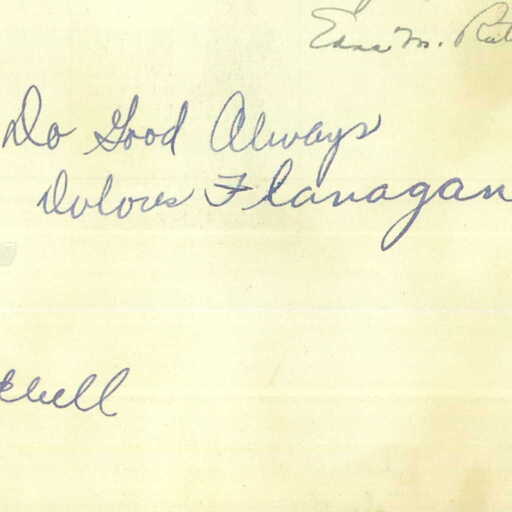 Edna M.
Do Good Always
Dolores Flanagan